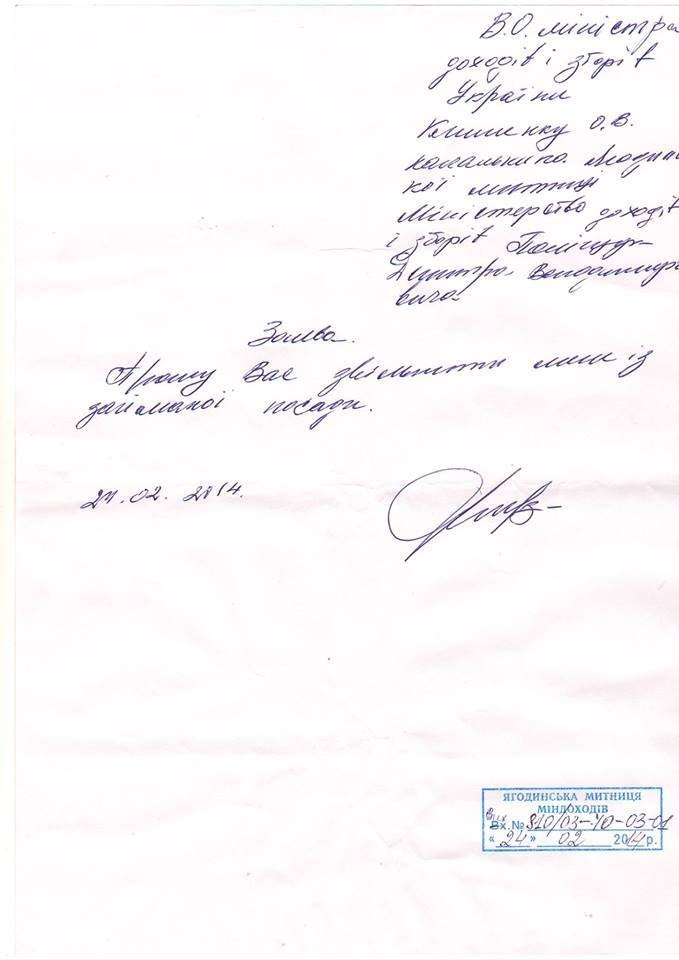 В.О. міністра
доходів і зборів
України
Клименку О.В.
начальника Ягодинс
кої митниці
Міністерство доходів
і зборів Поліщук
Дмитра Володимиро
вича
Заява.
Прошу Вас звільнити мене із
займаної посади.
24.02.2014.
ЯГОДИНСЬКА МИТНИЦЯ
МІНДОХОДІВ
Вих
Вх.№ 810/03-70-03-01
« 24 » 02 2014 р.